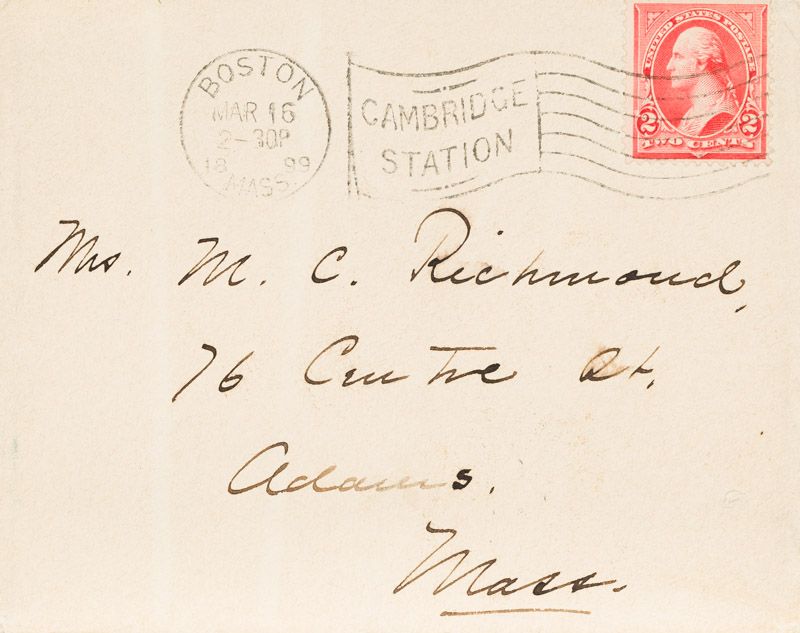 BOSTON
MAR 16
2-30P
18 99
MASS.
CAMBRIDGE
STATION
UNITED STATES POSTAGE
2 2
TWO CENTS
Mrs. M. C. Richmond,
76 Centre St.
Adams.
Mass.